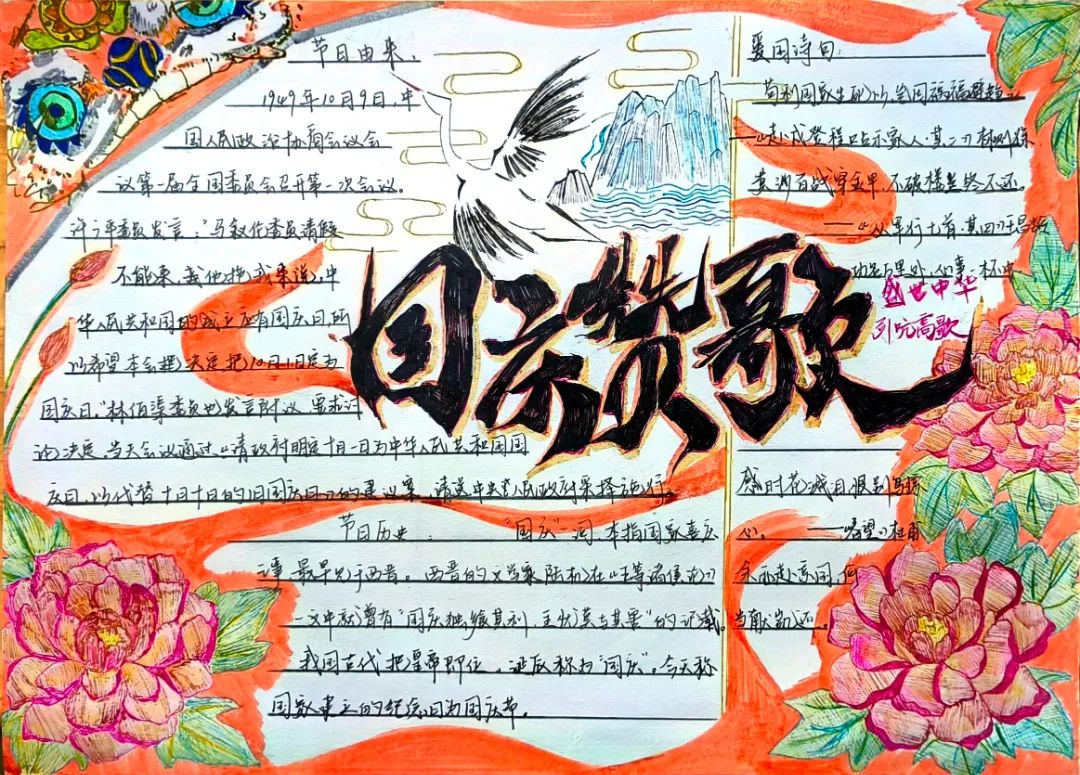 节日由来:
1949年10月9日,中
国人民政治协商会议会
议第一届全国委员会召开第一次会议。
许广平委员发言:"马叙伦委员请假
不能来,我他把我来说,中
华人民共和国的成立应有国庆日所
以希望本会把决定把10月1日定为
国庆日。"林伯渠委员也发言附议,要求讨
论决定。当天会议通过《请政府明定十月一日为中华人民共和国国
庆日,以代替十月十日的旧国庆日》的建议案,请送中央人民政府采择施行
节日历史:"国庆"一词,本指国家喜庆
之事,最早见于西晋。西晋的文学家陆机在《五等诸侯论》
一文中就曾有"国庆独飨其利,主忧莫与其害"的记载。
我国古代把皇帝即位,诞辰称为"国庆"。今天称
国家建立的纪念日为国庆节。
国庆赞歌
盛世中华
引吭高歌
爱国诗句:
苟利国家生死以,岂因祸福避趋之
——《赴戍登程口占示家人·其二》林则徐
黄沙百战穿金甲,不破楼兰终不还。
——《从军行七首·其四》王昌龄
功名万里外,心事一杯中
感时花溅泪恨别鸟惊
心。——《春望》杜甫
余亦赴京国,何
当献凯还。